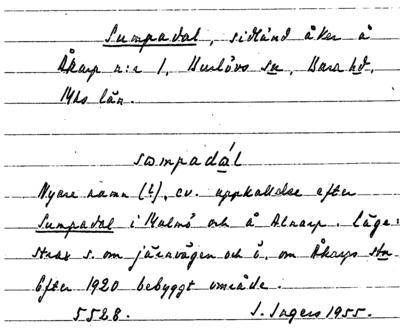 Sumpadal, sidländ åker å
Åkarp n:r 1, Burlövs sn, Bara hd,
Mhs län.
sɑmpadál
Nyare namn (!), ev. uppkallelse efter
Sumpadal i Malmö och å Alnarp. Läge:
strax s. om järnvägen och ö. om Åkarps stn
Efter 1920 bebyggt område.
5528. I. Ingers 1955.